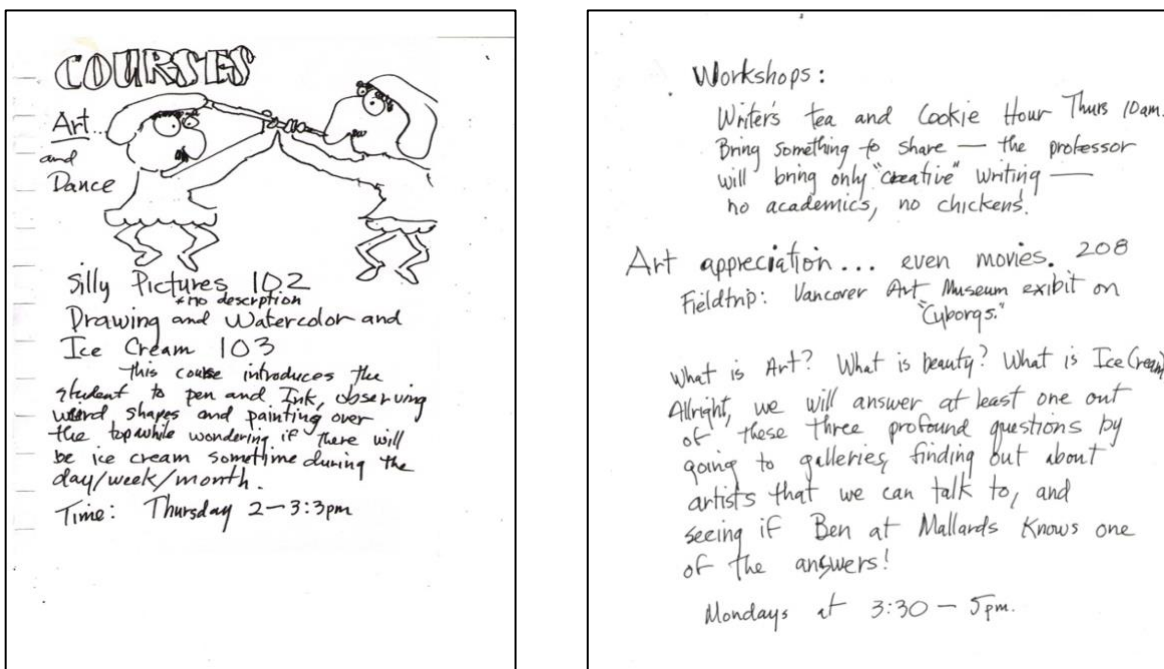 COURSES
Art...
and
Dance
Silly Pictures 102
*no descrption
Drawing and Watercolor and
Ice Cream 103
This course introduces the
student to pen and Ink, observing
weird shapes and painting over
the top while wondering if there will
be ice cream sometime during the
day/week/month.
Time: Thursday 2-3:3pm
Workshops:
Writer's tea and Cookie Hour Thurs 10am.
Bring something to share — the professor
will bring only "creative" writing —
no academics, no chickens!
Art appreciation... even movies. 208
Fieldtrip: Vancover Art Museum exibit on
"Cyborgs."
What is Art? What is beauty? What is Ice Cream
Allright, we will answer at least one out
of these three profound questions by
going to galleries, finding out about
artists that we can talk to, and
seeing if Ben at Mallards knows one
of the answers!
Mondays at 3:30 - 5pm.